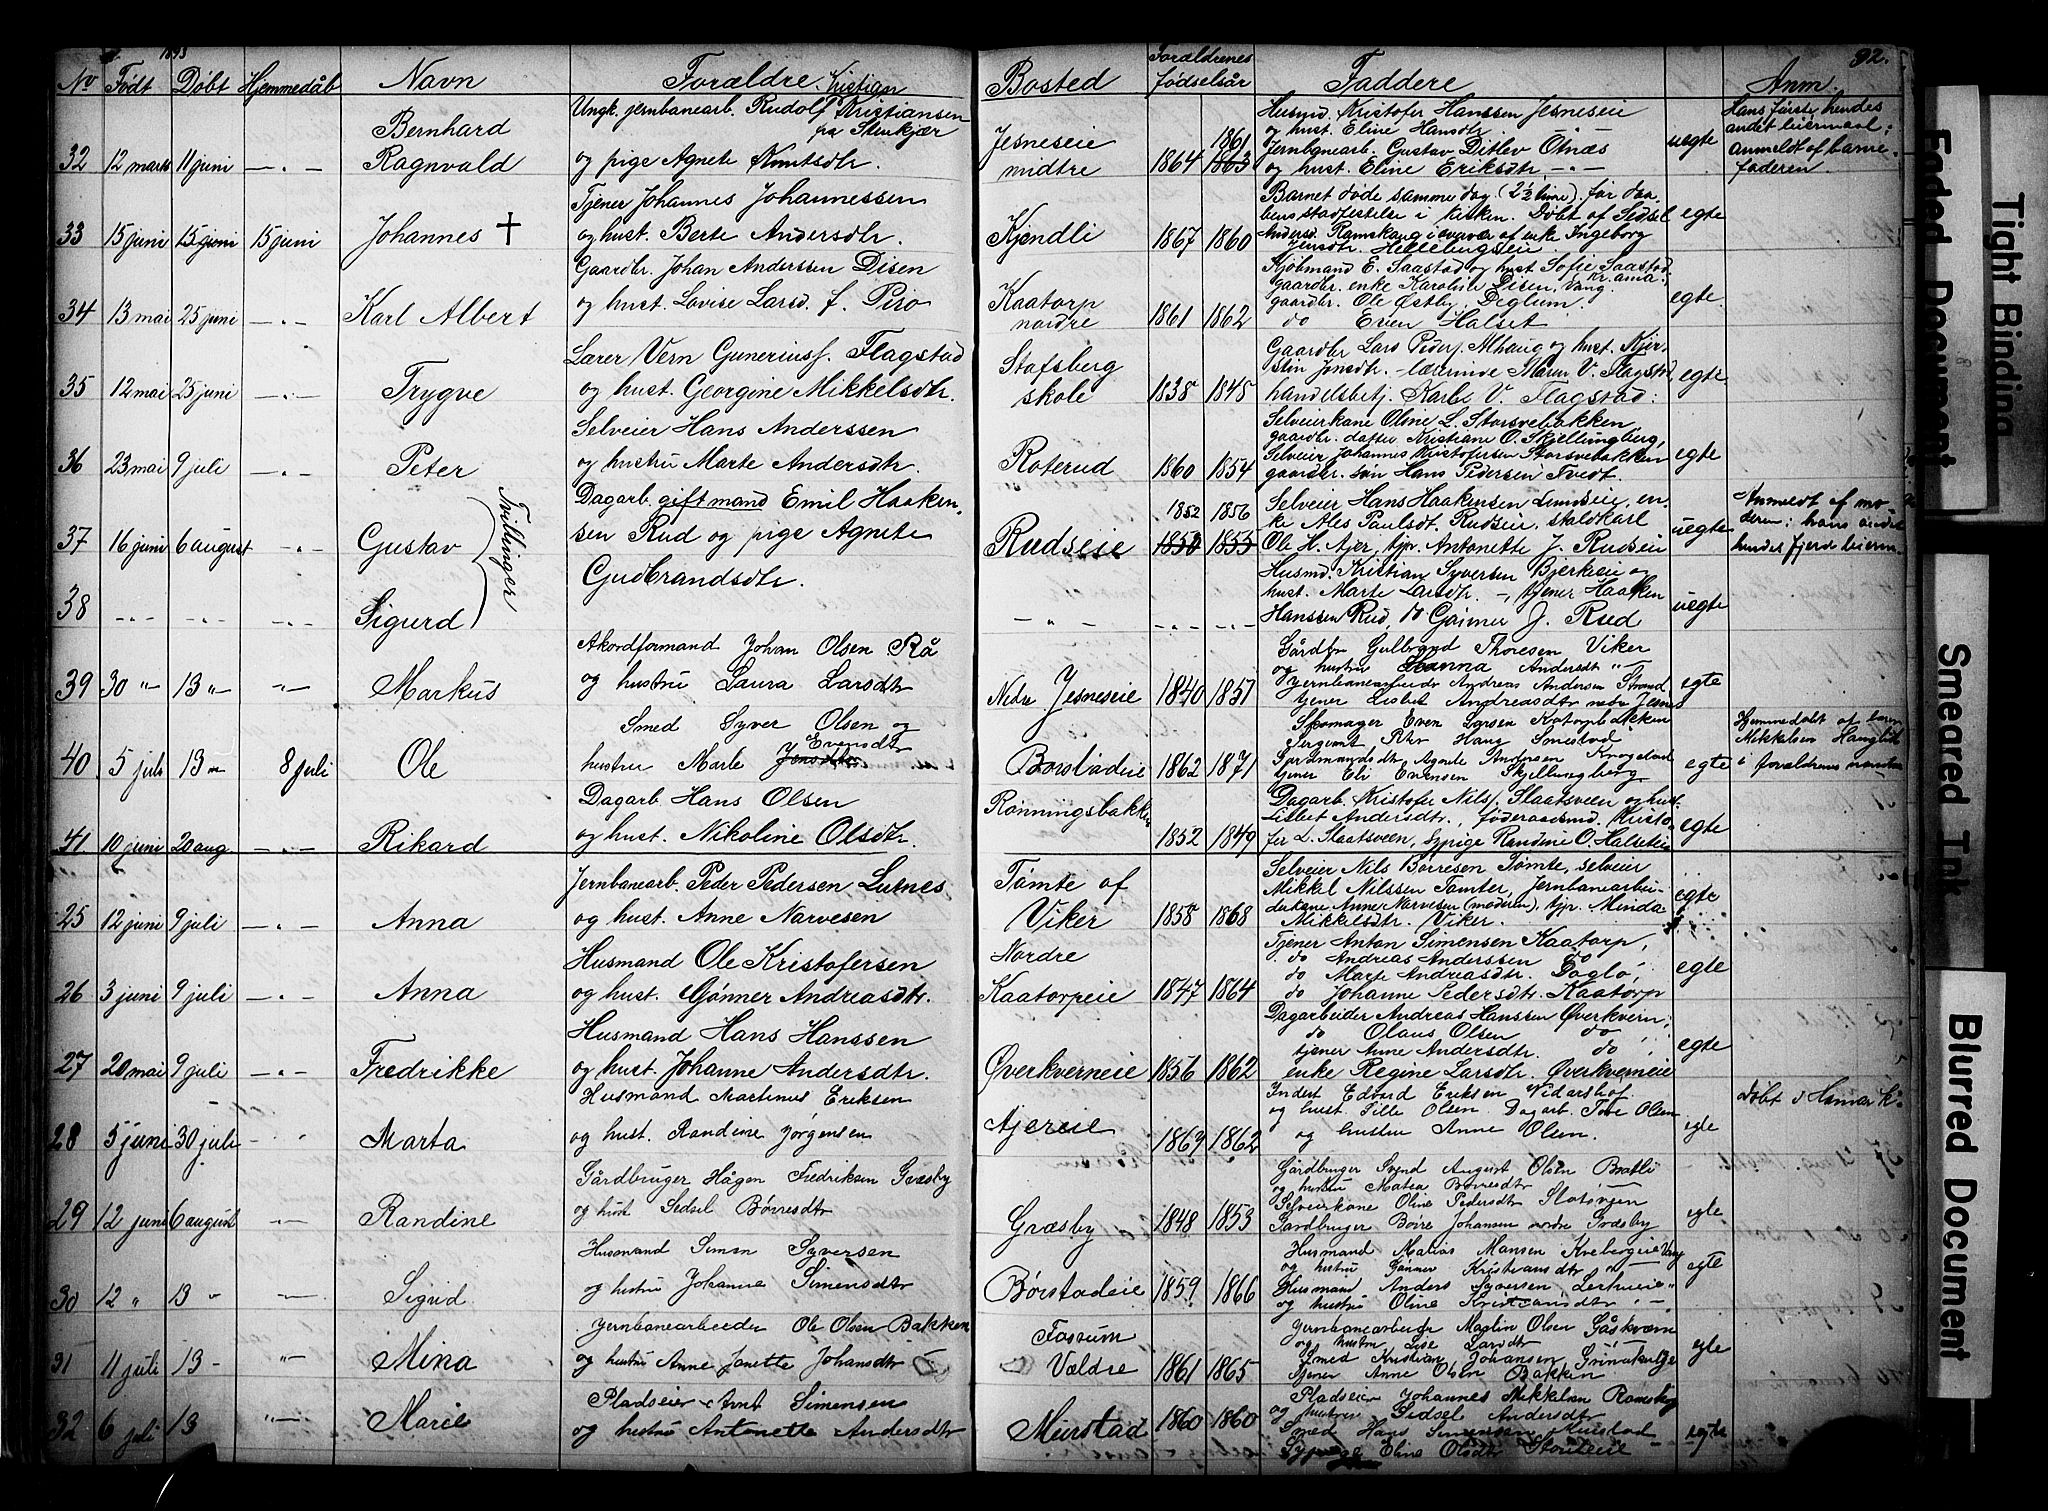 1893
92.
No Født Døbt Hjemmedåb Navn Forældre Bosted Forældrenes fødselsår Faddere Anm.
32 12 marts 11 juni —„— Bernhard Ragnvald
Ungk. jernbanearb. Rudolf Kristian Kristiansen
fra Stenkjær
og pige Agnete Knutsdtr.
Jesneseie midtre 1864 1861 1863
Husmd. Kristofer Hanssen Jesneseie
og hust. Eline Hansdtr.
Jernbanearb. Gustav Ditlev Otnæs
og hust. Eline Eriksdtr. —„—
uegte
Hans første, hendes
andet leiermaal;
anmeldt af barne-
faderen.
33 15 juni 15 juni 15 juni Johannes †
Tjener Johannes Johannessen
og hust. Berte Andersdtr.
Kjendli 1867 1860
Barnet døde samme dag (2½ time) før daa-
bens stadfestelse i kirken. Døbt af Sidsel
Andersd. Ramskaug i nærvær af enke Ingeborg
Jensdtr. Hellebergseie
egte
34 13 mai 25 juni —„— Karl Albert
Gaardbr. Johan Anderssen Disen
og hust. Lovise Larsd. f. Piro
Kaatorp nordre 1861 1862
Kjøbmand E. Saastad og hust. Sofie Saastad
gaardbr. enke Karoline Disen, Vang.
gaardbr. Ole Østby, Deglum.
do Even Halset
egte.
35 12 mai 25 juni —„— Trygve
Lærer Vern Guneriusf. Flagstad
og hust. Georgine Mikkelsdtr.
Stafsberg skole 1838 1848
Gaardbr Lars Peders. Alhaug og hust. Kjer-
stin Jonsdtr. – lærerinde Maren V. Flagstad,
handelsbetj. Karle V. Flagstad:
egte
36 23 mai 9 juli —„— Peter
Selveier Hans Anderssen
og hustru Marte Andersdtr.
Roterud 1860 1854
Selveierkone Oline L. Storsvebakken,
gaardbr. datter Kristiane O. Skjellungberg,
Selveier Johannes Kristofersen Storsvebakken
gaardbr. søn Hans Pedersen Tvedt.
egte
37 16 juni 6 august —„— Gustav
Tvillinger
Dagarb. gift mand Emil Haaken-
sen Rud og pige Agnete
Gudbrandsdtr.
Rudseie 1852 1856
1850 1855
Selveier Hans Haakensen Lundseie, en-
ke Ales Paulsdt. Rudseie, staldkarl
Ole H. Ajer, tjp. Antonette J. Rudseie
uegte
Anmeldt af mo-
deren; hans andet
hendes fjerde leierm.
38 —„— —„— —„— Sigurd
—„— —„— —„—
Husmd. Kristian Syversen Bjerkeie og
hust. Marte Larsdtr. –, tjener Haaken
Hanssen Rud, do Gaimer J. Rud
uegte
39 30 „ 13 „ —„— Markus
Akordformand Johan Olsen Rå
og hustru Laura Larsdtr
Nedre Jesneseie 1840 1857
Gårdbr Gulbrand Thoresen Viker
og hustru Hanna Andersdt „
Jernbanearbeider Andreas Andersen Strand
tjener Lisbet Andreasdtr nedre Jesnes
egte
40 5 juli 13 „ 8 juli Ole
Smed Syver Olsen og
hustru Marte Evensdtr Jensdtr
Borstadeie 1862 1871
Skomager Even Larsen Kaatorpbakken
Sergeant Peter Hans Smestad
Agarte Andersen Knogstad
tjener Eli Evensen Skjellungberg
egte
Hjemmedøbt af
Mikkelsen
forældrenes
41 10 juni 20 aug. —„— Rikard
Dagarb. Hans Olsen
og hust. Nikoline Olsdtr.
Rønningsbakken 1852 1849
Dagarb. Kristofer Nilsf. Slaatsveen og hust.
Lisbet Andersdtr., føderaadsmd. Kristo-
fer L. Slaatsveen, sypige Randine O. Halseteie
egte
25 12 juni 9 juli —„— Anna
Jernbanearb. Peder Pedersen Lutnes
og hust. Anne Narvesen
Tømte af Viker 1858 1868
Selveier Nils Børresen Tømte, selveier
Mikkel Nilssen Tømter, jernbanearbei-
derkone Anne Narvesen (moderen), tjp. Minda
Mikkelsdtr. Viker.
egte
26 3 juni 9 juli —„— Anna
Husmand Ole Kristofersen
og hust. Gjønner Andreasdtr.
Nordre Kaatorpeie 1847 1864
Tjener Anton Simensen Kaatorp,
do Andreas Anderssen do
do Marte Andreasdtr. Dagla,
do Johanne Pedersdtr. Kaatorp
egte
27 20 mai 9 juli —„— Fredrikke
Husmand Hans Hanssen
og hust. Johanne Andersdtr.
Øverkverneie 1856 1862
Dagarbeider Andreas Hanssen Øverkvern;
do Olaus Olsen do
tjener Anne Andersdtr. do
enke Regine Larsdtr. Øverkverneie
egte
28 5 juni 30 juli —„— Marta
Husmand Martinus Eriksen
og hust. Randine Jørgensen
Ajereie 1869 1862
Inderst Edvard Eriksen Vidarshof
og hust. Pille Olsen. Dagarb. Tove Olsen
og hustru Anne Olsen.
egte
Døbt i Hamar k.
29 12 juni 6 august —„— Randine
Gårdbruger Hågen Fredriksen Græsby
og hust Sidsel Børresdtr
Græsby 1848 1853
Gårdbruger Svend August Olsen Bratli
og hustru Matea Børresdtr
Selveierkone Oline Pedersdtr Slotsvjen
Gardbruger Børre Johansen nordre Græsby
egte
30 12 „ 13 „ —„— Sigrid
Husmand Simen Syversen
og hustru Johanne Simensdtr
Børstadeie 1859 1866
Husmand Matias Hansen Krebergeie Vang
og hustru Gønner Kristiansdtr —„—
Husmand Anders Syversen Lerhueie „
og hustru Oline Kristiansdtr „ —
egte
31 4 juli 13 – —„— Mina
Jernbanearbeider Ole Olsen Bakken
og hustru Anne Janette Johansdtr
Fossum Vældre 1861 1865
Jernbanearbeider Maglin Olsen Gåskværn
og hustru Lise Larsdtr
Smed Kristian Johansen Grinakulje
tjener Anne Olsen Bakken
egte
32 6 juli 13 —„— Marie
Pladseier Arnt Simensen
og hustru Antonette Andersdtr
Murstad 1860 1860
Pladseier Johannes Mikkelsen Ramsby
og hustru Sidsel Andersdtr
Smed Hans Simensen Murstad
Sypige Eline Olsdtr Storiteie
egte
Faded Document
Tight Binding
Smeared Ink
Blurred Document